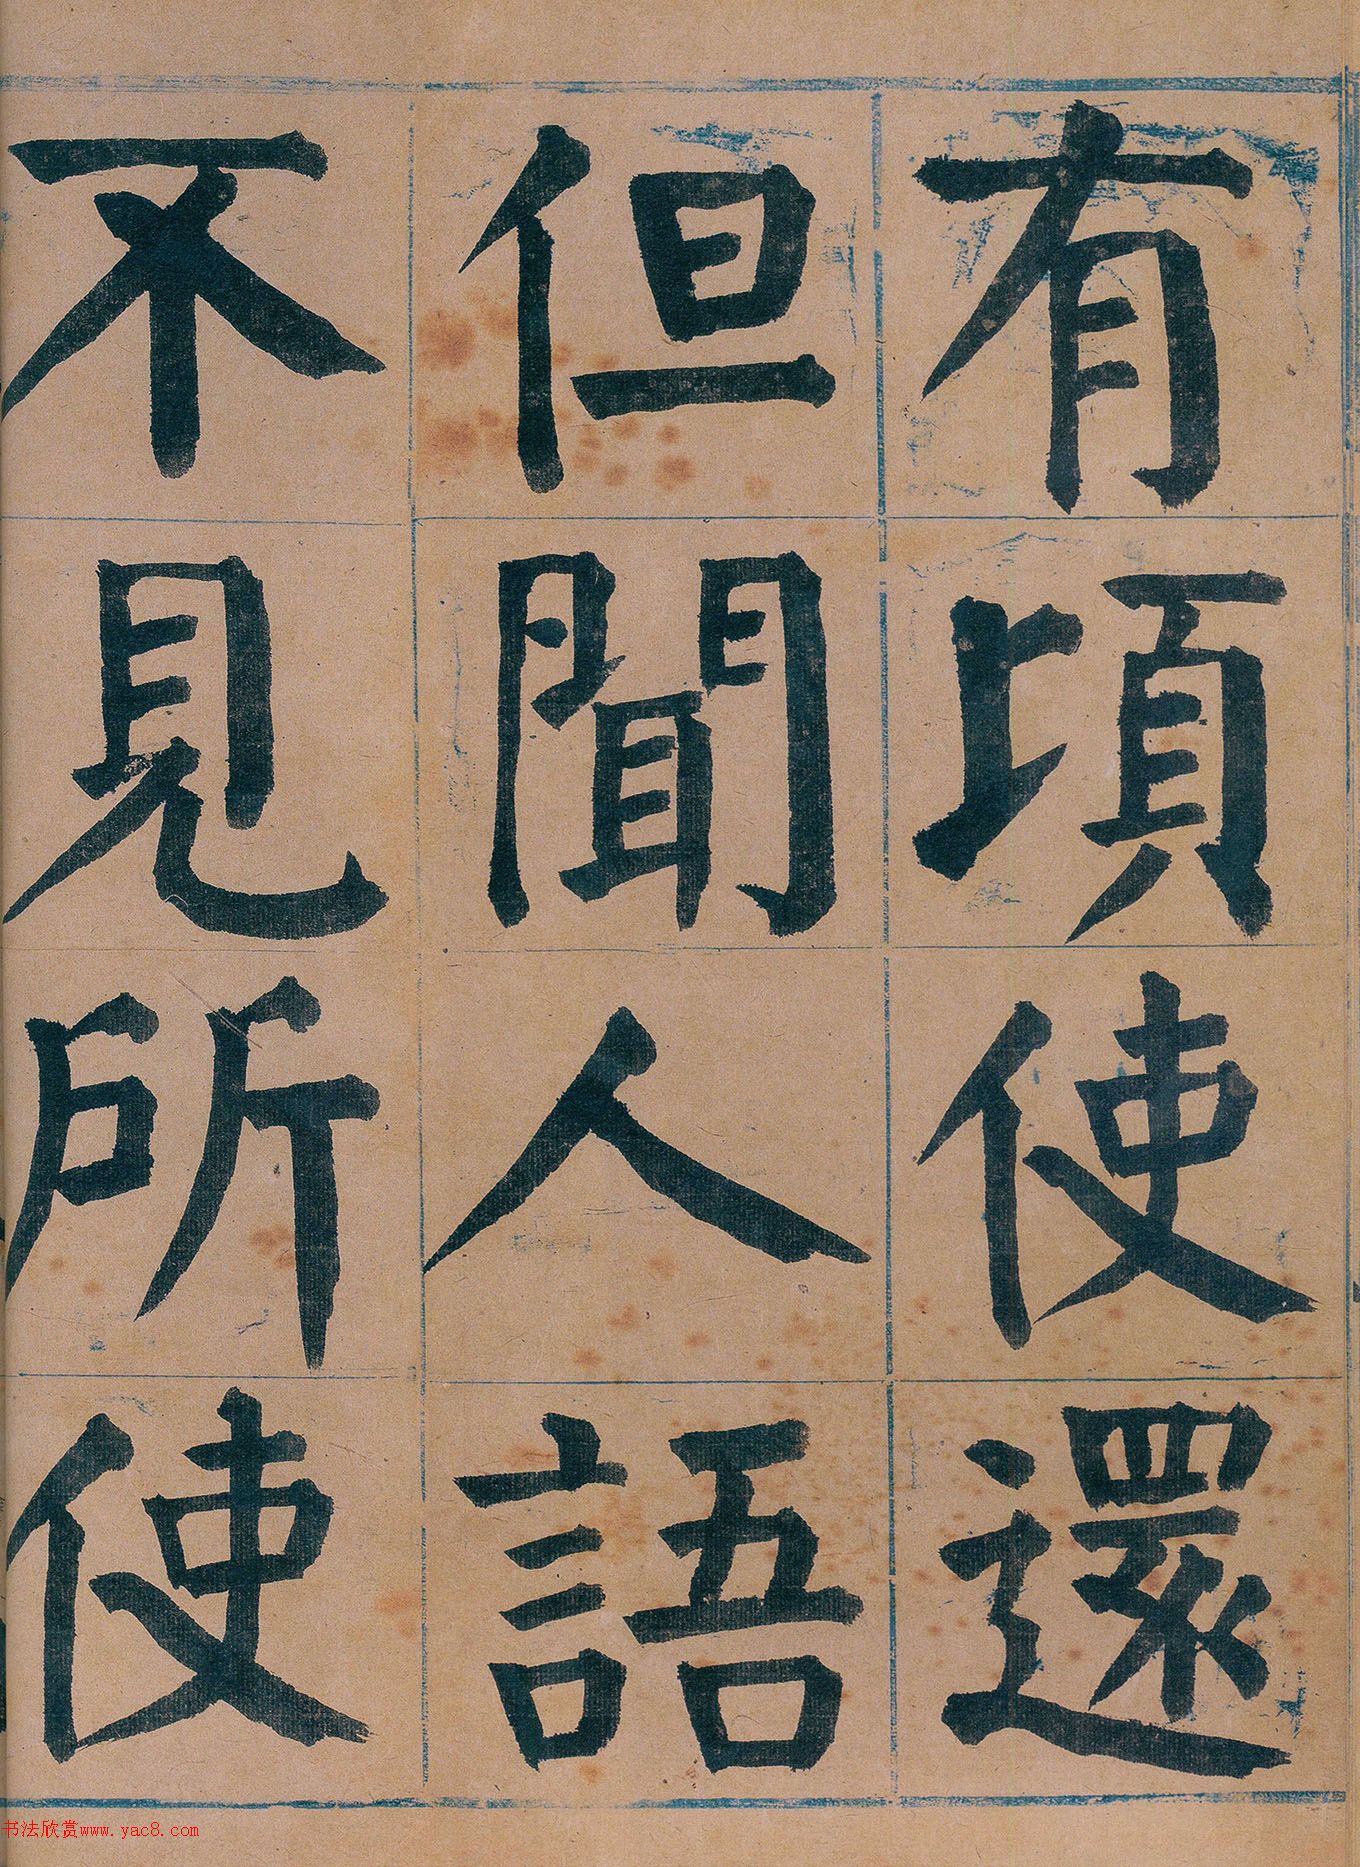 有頃使還
但聞人語
不見所使
书法欣赏www.yac8.com